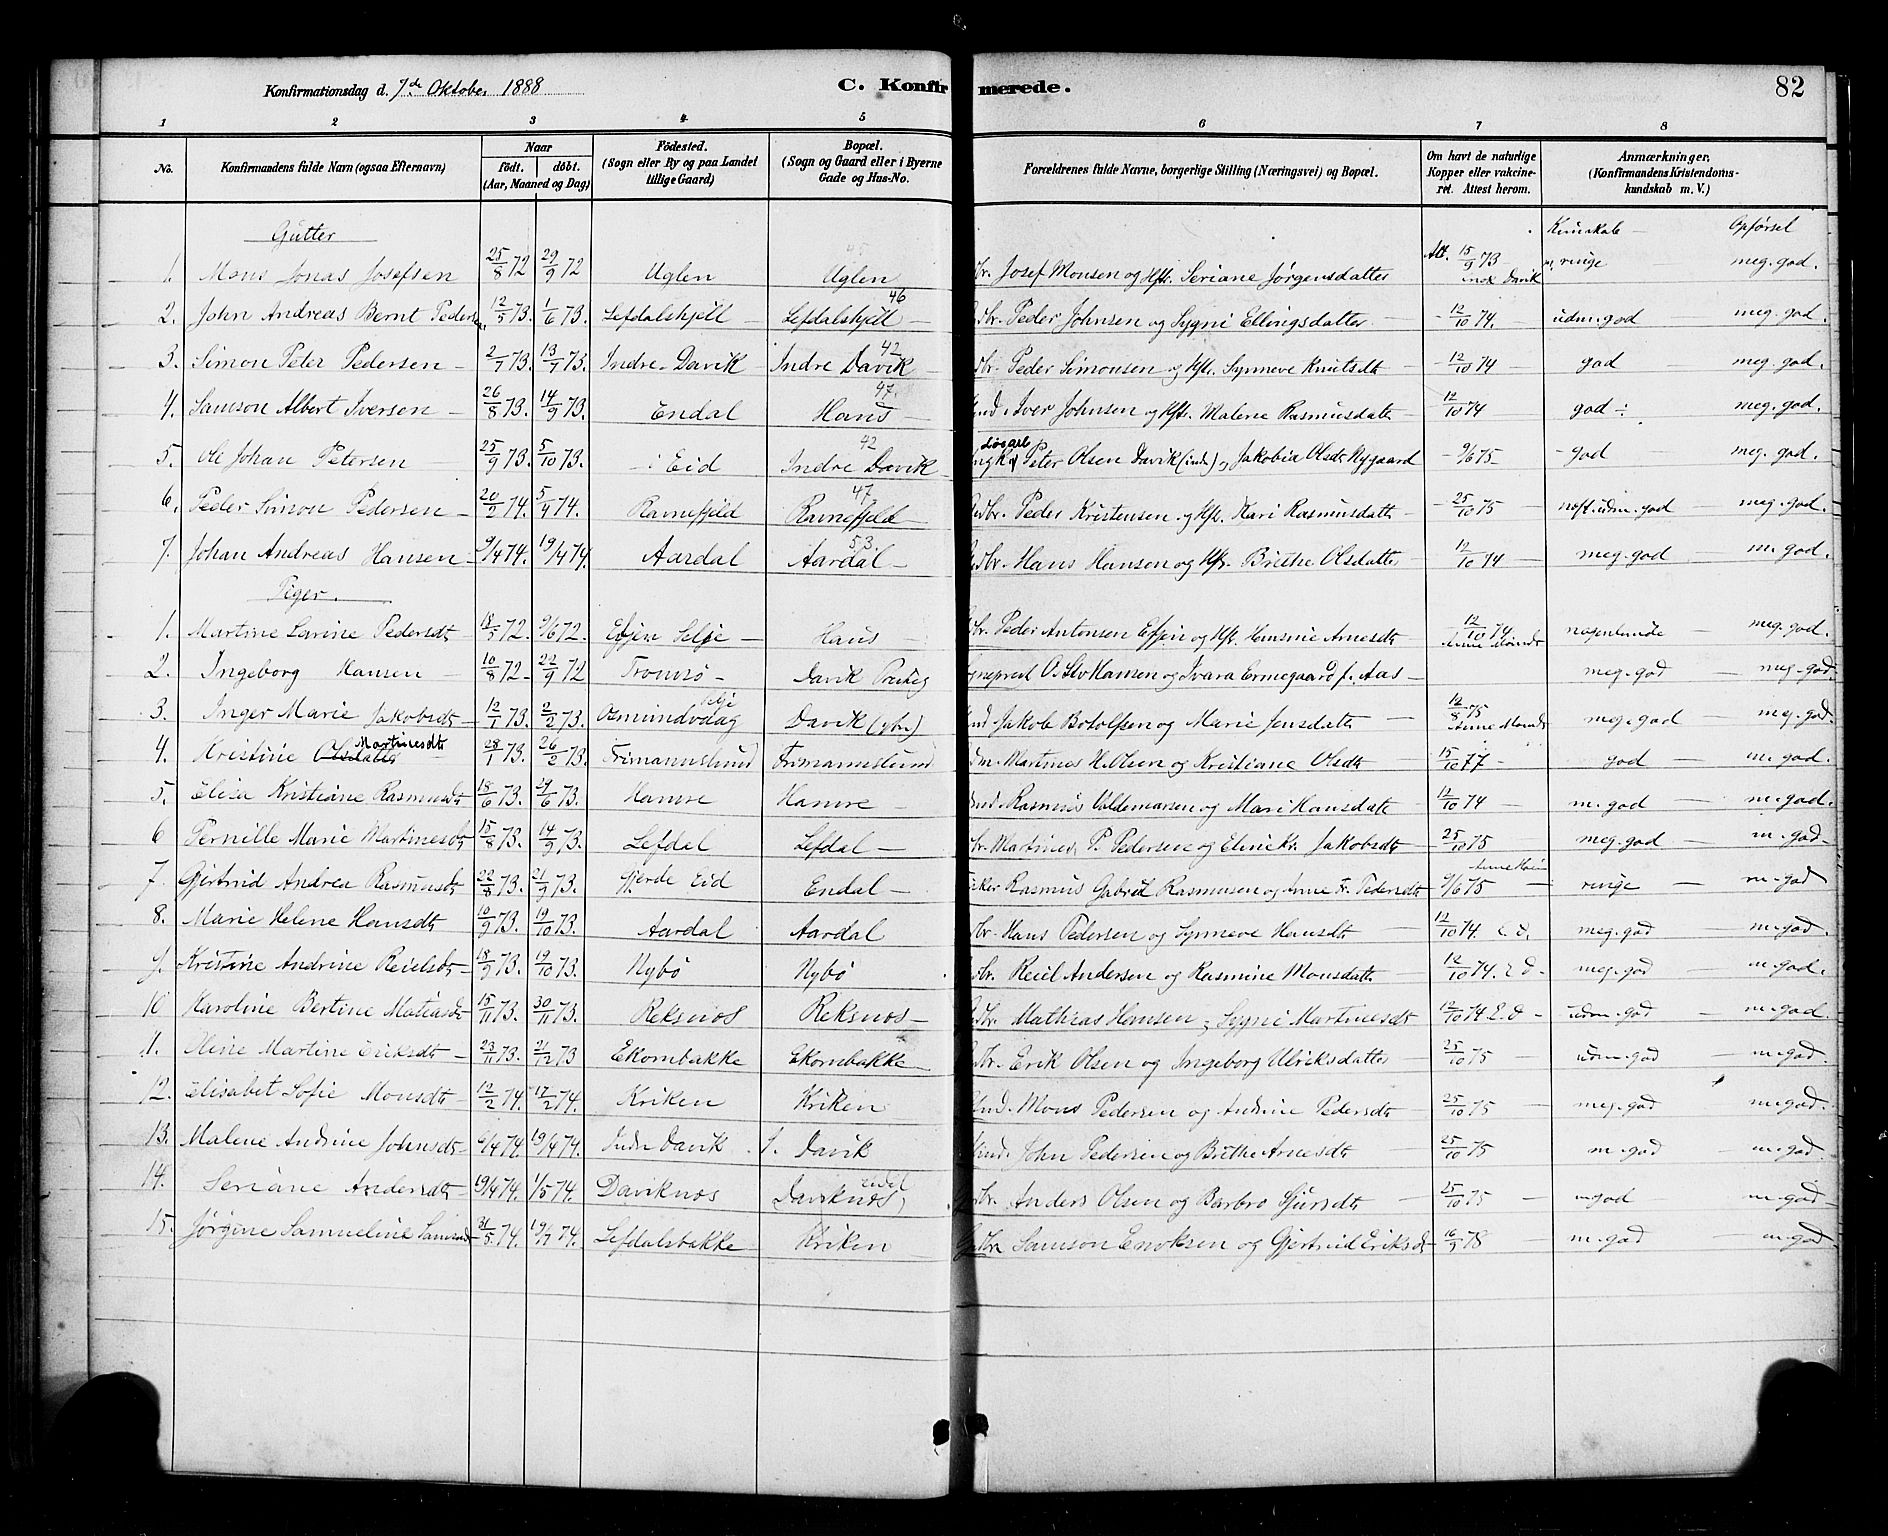 Konfirmationsdag d. 7de Oktober 1888 C. Konfirmerede. 82
1 2 3 4 5 6 7 8
No. Konfirmandens fulde Navn (ogsaa Efternavn) Naar født. døbt. (Aar, Maaned og Dag) Fødested. (Sogn eller By og paa Landet tillige Gaard) Bopæl. (Sogn og Gaard eller i Byerne Gade og Hus-No. Forældrenes fulde Navne, borgerlige Stilling (Næringsvei) og Bopæl. Om havt de naturlige Kopper eller vakcineret. Attest herom. Anmærkninger. (Konfirmandens Kristendomskundskab m. V.)
Gutter Kundskab Opførsel
1. Mons Jonas Josefsen 25/8 72 29/9 72 Uglen Uglen br. Josef Monsen og Hst. Seriane Jørgensdatter Att. 15/9 73 indr Davik m. ringe meg. god.
2. John Andreas Bernt Pedersen 12/5 73. 1/6 73. Lefdalshjell Lefdalshjell 46 br. Peder Johnsen og Sygni Ellingsdatter 12/10 74. udm. god meg. god.
3. Simon Peter Pedersen 2/7 73. 13/7 73. Indre Davik Indre Davik 42 br. Peder Simonsen og Hst. Synneve Knutsdt 12/10 74 god meg. god.
4. Samson Albert Iversen 26/8 73. 14/9 73. Endal Haus 47 Ind. Iver Johnsen og Hst. Malene Rasmusdatt 12/10 74 god ÷ meg. god.
5. Ole Johan Petersen 25/9 73. 5/10 73. i Eid Indre Davik 42 Løsarb Ungk Peter Olsen Davik (indr) og Jakobia Olsdt Nygaard 9/6 75 god meg. god.
6. Peder Simon Pedersen 20/2 74. 5/4 74. Ravnefjeld Ravnefjeld 47 Gbr. Peder Kristensen og Hst. Kari Rasmusdatt 25/10 75 noft. udm. god meg. god
7. Johan Andreas Hansen 9/4 74. 19/4 74. Aardal Aardal 53. br. Hans Hansen og Hst. Brithe Olsdatter 12/10 74 meg. god m. god.
Piger.
1. Martine Lavine Pedersdt 18/5 72. 9/6 72. Efjen Selje Haus br. Peder Antonsen Efjen og Hst. Hansine Arnesdt 12/10 74. nogenlunde meg. god.
2. Ingeborg Hansen 10/8 72 22/9 72 Tromsø Davik Prstg Sogneprest O. Hansen og Ivara Ermegaard f. Aas meg. god meg. god
3. Inger Marie Jakobsdt 12/1 73. 2/2 73. Osmundvaag Selje Davik (ytr) Ind. Jakob Botolfsen og Marie Jensdatt 12/8 75 meg. god meg. god
4. Kristine Olsdatter Martinesdt 28/1 73. 26/2 73. Frimannslund Frimannslund dm. Martines H. Olsen og Kristiane Olsdt 15/10 77 god m. god.
5. Elisa Kristiane Rasmusdt 18/6 73. 29/6 73. Hamre Hamre Ind. Rasmus Valdemarsen og Mari Hansdatt 12/10 74 m. god m. god.
6 Pernille Marie Martinesdt 15/8 73. 14/9 73. Lefdal Lefdal br. Martines P. Pedersen og Elin Kr. Jakobsdt 25/10 75 meg. god m. god
7. Gjertrud Andrea Rasmusdt 22/8 73. 21/9 73. Gjerde Eid Endal Rasmus Gabriel Rasmusen og Anne Fr. Pedersdt 9/6 75 ringe m. god
8. Marie Helene Hansdt 10/9 73. 19/10 73. Aardal Aardal br. Hans Pedersen og Synneve Hansdt 12/10 74. E. D. meg. god m. god.
9. Kristine Andrine Reielsdt 18/9 73. 19/10 73. Nybø Nybø br. Reiel Andersen og Rasmine Monsdatt 12/10 74. E D meg. god m. god.
10 Karoline Bertine Matiasdt 15/11 73. 30/11 73. Reksnos Reksnos br. Mathias Hansen og Sygni Martinesdt 12/10 74 E. D udm. god m. god
11. Oline Martine Eriksdt 23/11 73. 21/12 73 Ekornbakke Ekornbakke br. Erik Olsen og Ingeborg Ulriksdatter 25/10 75 udm. god m. god
12. Elisabet Sofie Monsdt 12/2 74. 17/2 74. Kriken Kriken Ind. Mons Pedersen og Andrine Pedersdt 25/10 75 meg. god m. god.
13. Malene Andrine Johnsdt 6/4 74. 19/4 74. Indr Davik I. Davik Ind. John Pedersen og Brithe Arnesdt 25/10 75 m. god m. god
14. Seriane Andersdt 19/4 74. 1/5 74. Daviknos Daviknos br. Anders Olsen og Barbro Sjursdt 25/10 75 m. god m. god
15. Jørgine Samueline Samsdt 31/5 74. 19/7 74. Lefdalsbakke Kriken Gbr. Samson Enoksen og Gjertrud Eriksdt 16/9 78 m. god m. god